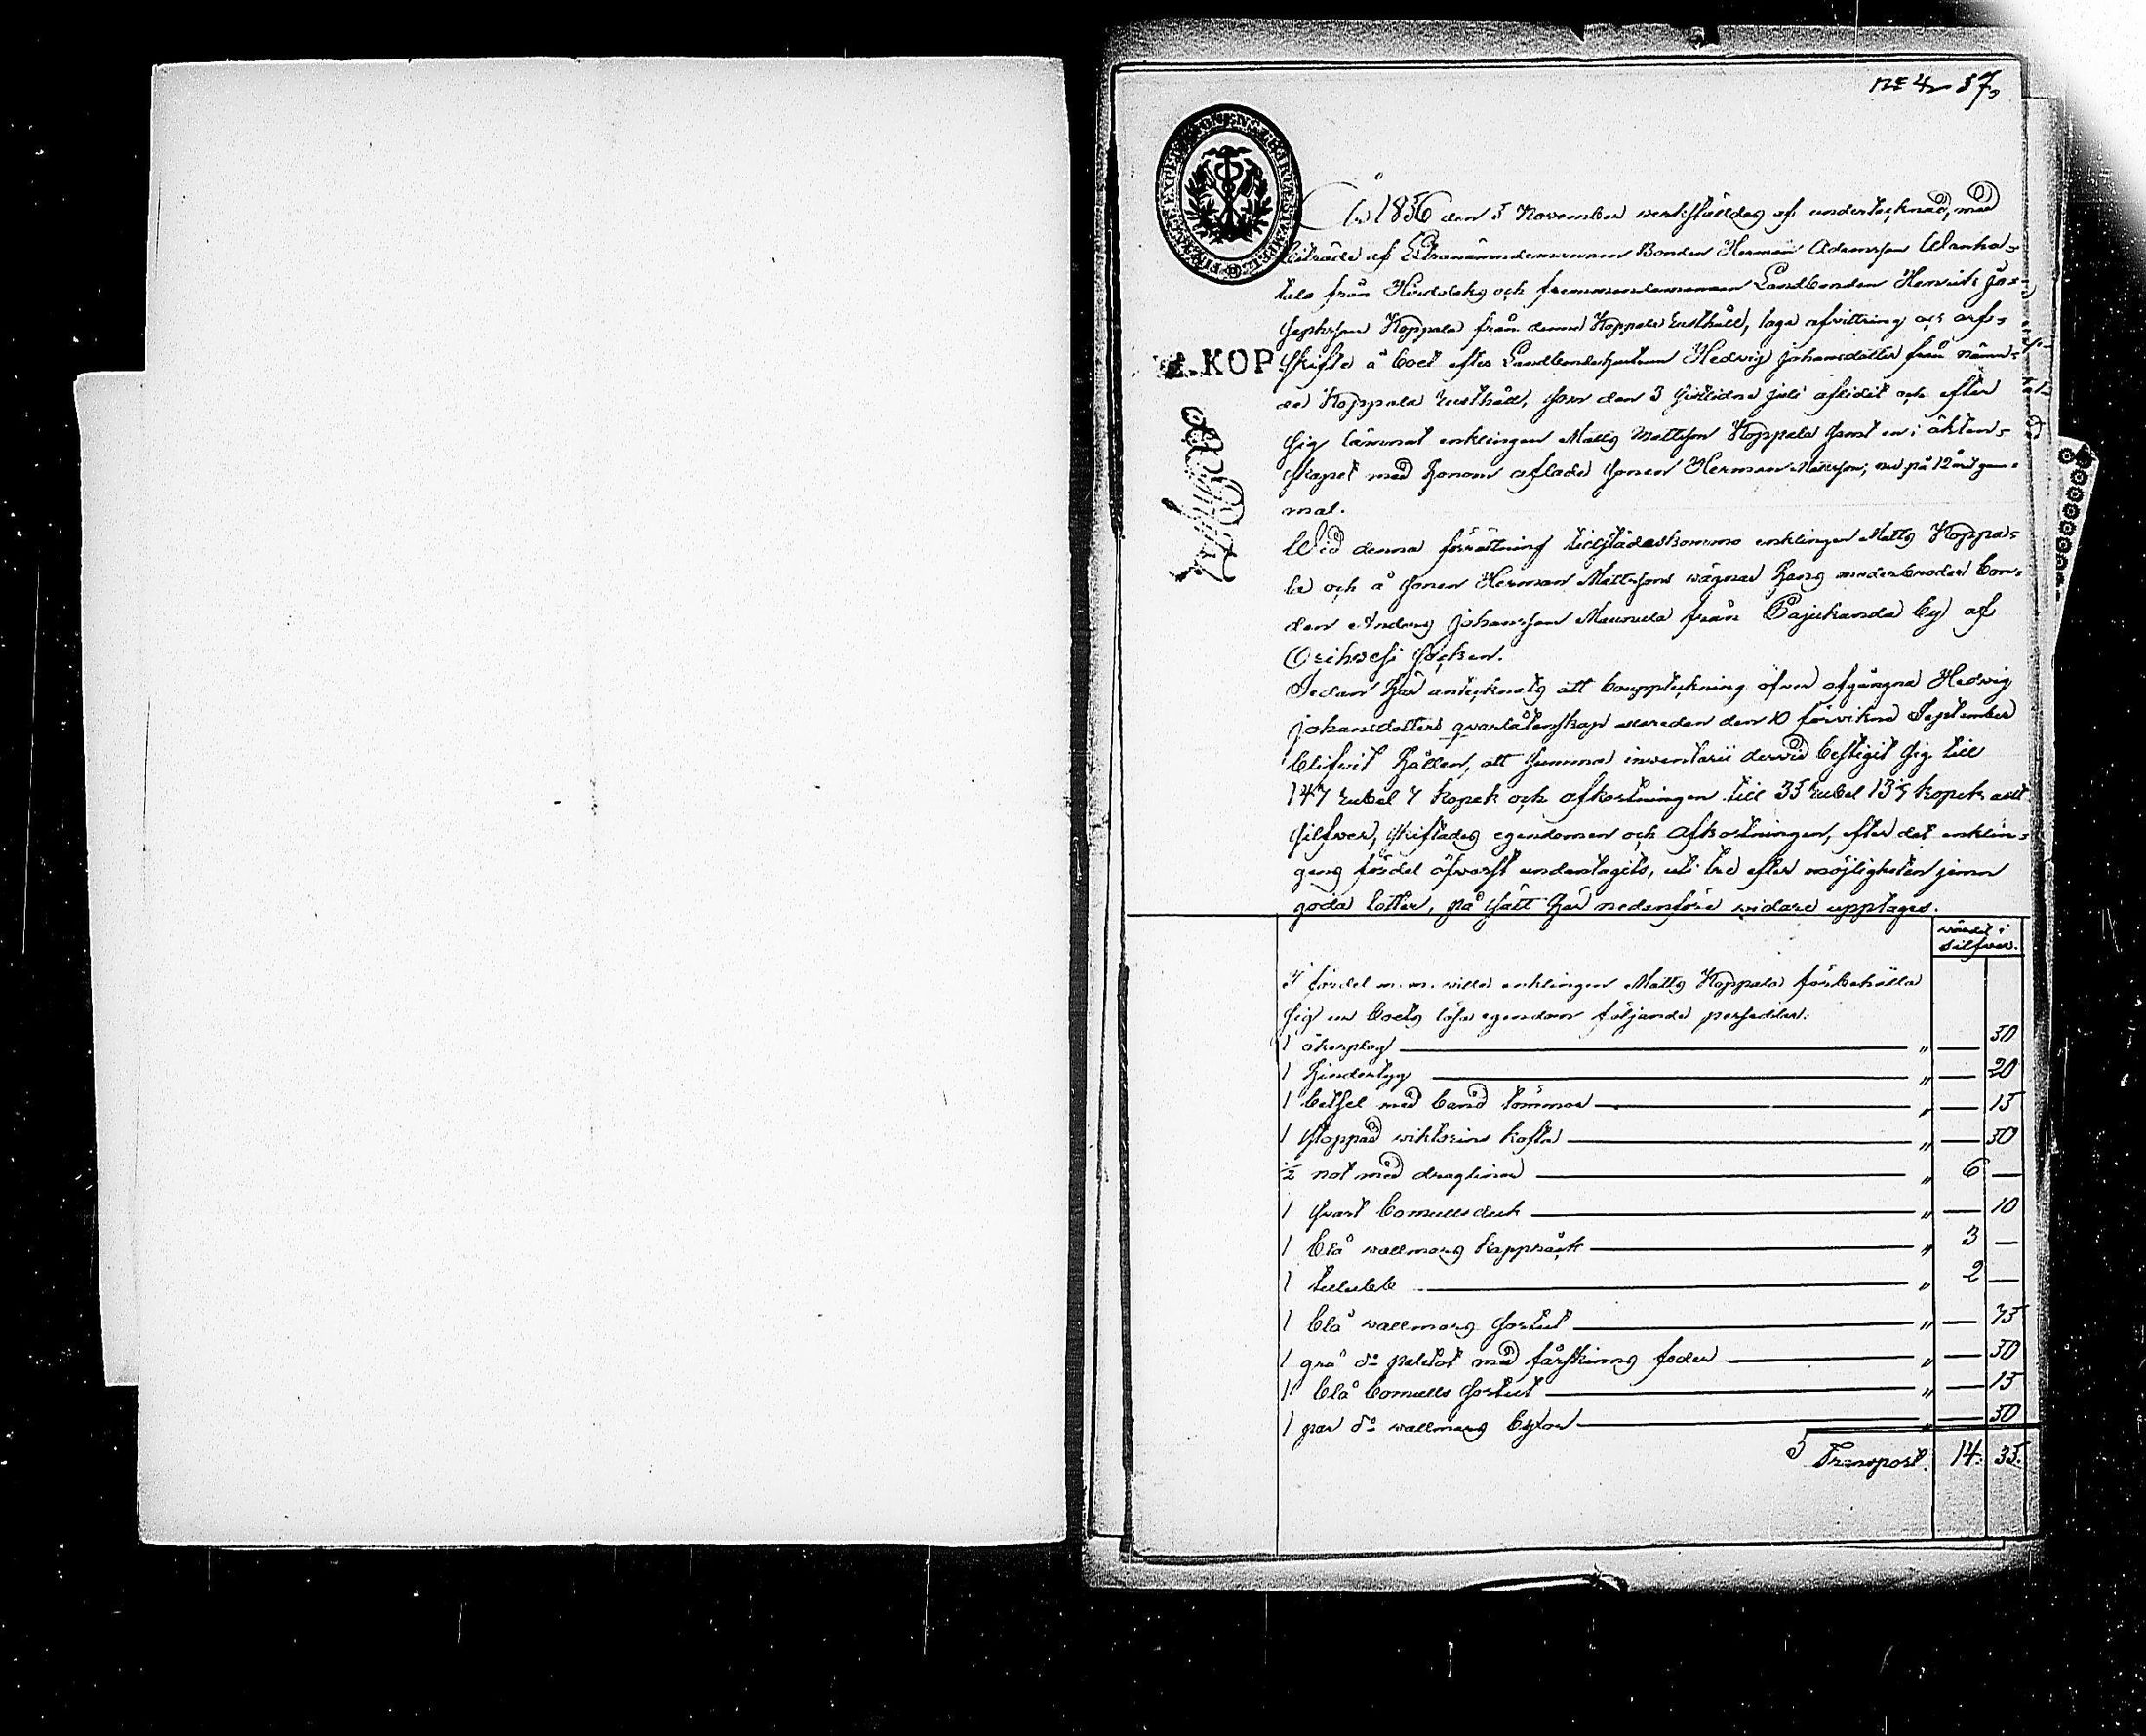 No 4 37.
År 1856 den 5 November werkställdes af undertecknad, med
biträde af Extranämndemannen Bonden Herman Adamsson Wanha-
talo från och Landbonden Henrik Jo-
sephsson Koppala från denna Koppala rusthåll, laga afvittring och arf-
skifte å boet efter Landbondehustrun Hedvig Johansdotter från nämn-
da Koppala rusthåll, som den 3 sistlidne Juli aflidit och efter
sig lämnat enklingen Matts Mattsson Koppala samt en i äkten-
skapet med honom aflade sonen Herman Mattsson, nu på 12 året gam-
mal.
KOP
Wid denna förrättning tillstädeskommo enklingen Matts Koppa-
la och å sonen Herman Mattssons wägnar hans moderbroder bon-
den Anders Johansson Maunula från Pajukanda by af
Orihvesi socken.
Sedan här antecknats att bouppteckning öfver afgångna Hedvig
Johansdotters qvarlåtenskap allereden den 10 förvikne September
blifvit hållen, att summa inventarii dervid bestigit sig till
147 rubel 7 kopek och afkortningen till 35 rubel 13 5/7 kopek allt
silfver, skiftades egendomen och afkortningen, efter det enklin-
gens fördel öfverst undantagits, uti tre efter möjligheten jemn
goda lotter, på sätt här nedanföre widare upptages.
wärdet i
silfver.
I fördel m. m. wille enklingen Matts Koppala förbehålla
sig ur boets lösa egendom följande persedlar:
1 åkerplog " — 30
1 hindertyg " — 20
1 betsel med band tömmar " — 15
1 stoppad wiktorins kofta " — 50
1/2 not med draglinor " 6 —
1 swart bomullsduk " — 10
1 blå wallmans kapprock " 3 —
1 tulubb " 2 —
1 blå wallmans sortut " — 75
1 grå do paletot med fårskinns foder " — 50
1 blå bomulls sortut " — 15
1 par do wallmans byxor " — 50
Transport. 14. 35.